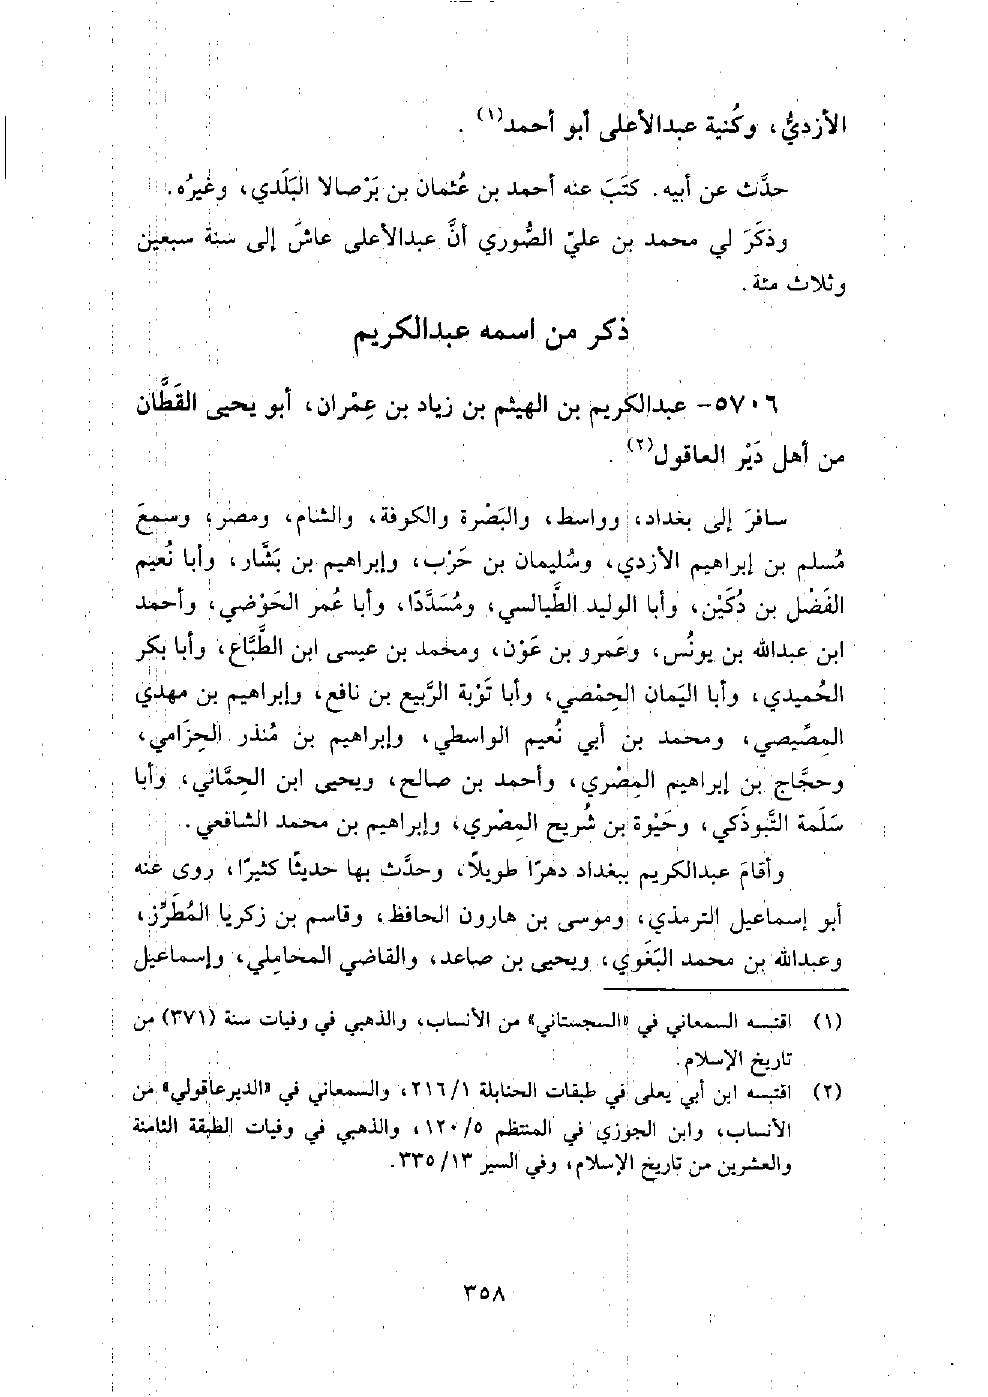 الأزديُّ، وكُنية عبدالأعلى أبو أحمد(١) .
حدَّث عن أبيه. كتَبَ عنه أحمد بن عُثمان بن بَرْصالا البَلَدي، وغيرُه.
وذكَرَ لي محمد بن عليّ الصُّوري أنَّ عبدالأعلى عاشَ إلى سنة سبعين
وثلاث مئة.
ذكر من اسمه عبدالكريم
٥٧٠٦- عبدالكريم بن الهيثم بن زياد بن عِمْران، أبو يحيى القَطَّان
من أهل دَيْر العاقول(٢) .
سافرَ إلى بغداد، وواسط، والبَصْرة والكوفة، والشام، ومصر، وسمعَ
مُسلم بن إبراهيم الأزدي، وسُليمان بن حَرْب، وإبراهيم بن بَشَّار، وأبا نُعيم
الفَضْل بن دُكَيْن، وأبا الوليد الطَّيالسي، ومُسَدَّدًا، وأبا عُمر الحَوْضي، وأحمد
ابن عبدالله بن يونُس، وعَمرو بن عَوْن، ومحمد بن عيسى ابن الطَّبَّاع، وأبا بكر
الحُميدي، وأبا اليَمان الحِمْصي، وأبا تَوْبة الرَّبيع بن نافع، وإبراهيم بن مهدي
المِصِّيصي، ومحمد بن أبي نُعيم الواسطي، وإبراهيم بن مُنذر الحِزَامي،
وحجَّاج بن إبراهيم المِصْري، وأحمد بن صالح، ويحيى ابن الحِمَّاني، وأبا
سَلَمة التَّبوذَكي، وحَيْوة بن شُريح المِصري، وإبراهيم بن محمد الشافعي.
وأقامَ عبدالكريم ببغداد دهرًا طويلاً، وحدَّث بها حديثًا كثيرًا، روى عنه
أبو إسماعيل الترمذي، وموسى بن هارون الحافظ، وقاسم بن زكريا المُطَرِّز،
وعبدالله بن محمد البَغَوي، ويحيى بن صاعد، والقاضي المحاملي، وإسماعيل
(١) اقتبسه السمعاني في «السجستاني» من الأنساب، والذهبي في وفيات سنة (٣٧١) من
تاريخ الإسلام.
(٢) اقتبسه ابن أبي يعلى في طبقات الحنابلة ١/ ٢١٦، والسمعاني في «الديرعاقولي» من
الأنساب، وابن الجوزي في المنتظم ٥/ ١٢٠، والذهبي في وفيات الطبقة الثامنة
والعشرين من تاريخ الإسلام، وفي السير ١٣/ ٣٣٥.
٣٥٨